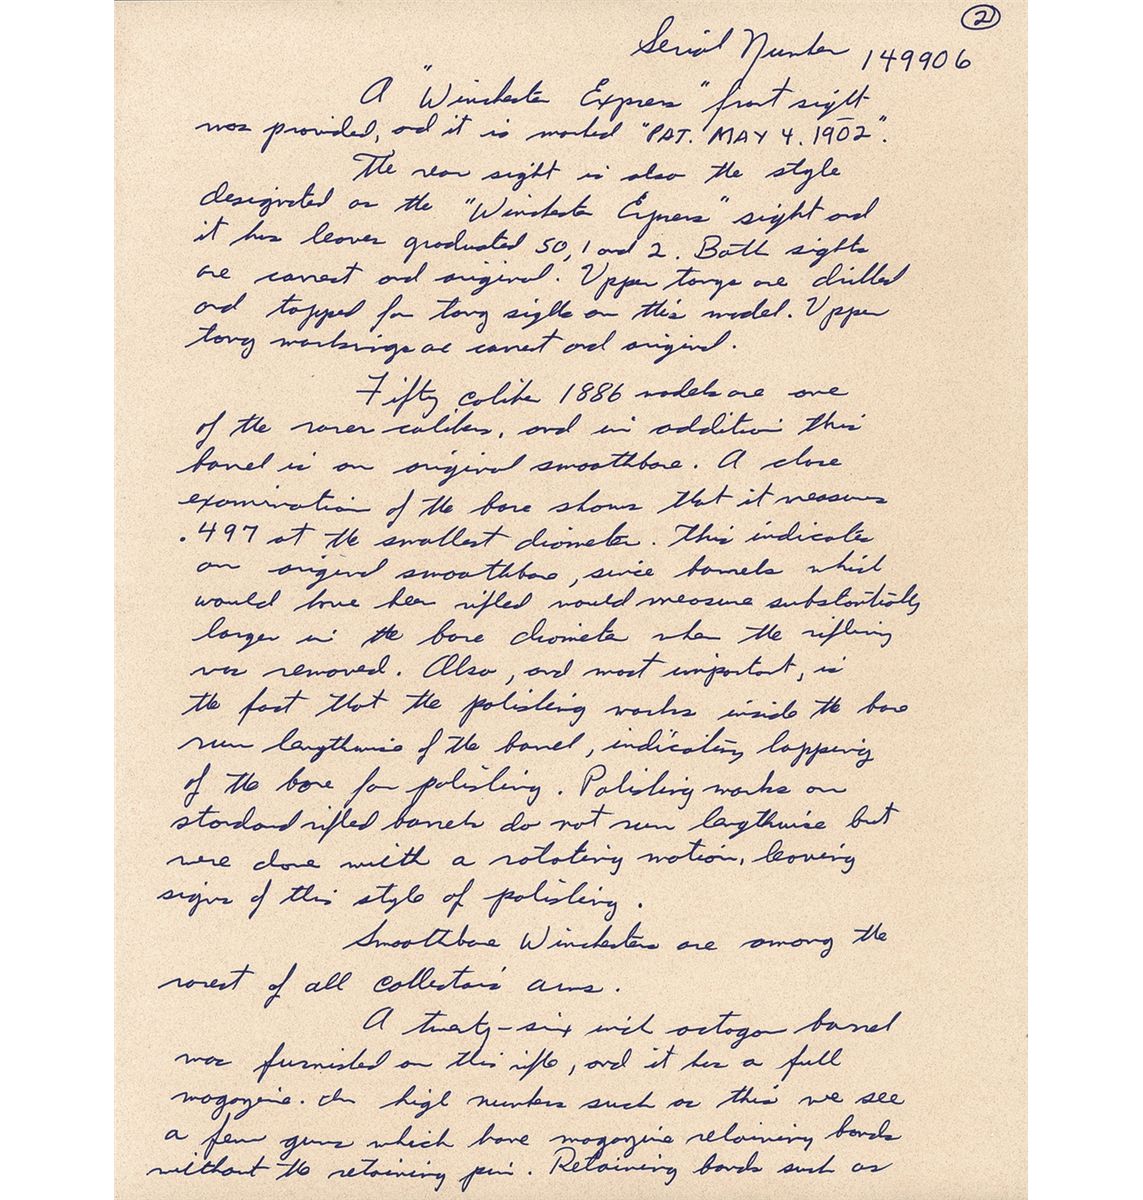 2
Serial Number 149906
A "Winchester Express" front sight
was provided, and it is marked "PAT. MAY 4. 1902".
The rear sight is also the style
designated as the "Winchester Express" sight and
it has leaves graduated 50, 1 and 2. Both sights
are correct and original. Upper tangs are drilled
and tapped for tang sights on this model. Upper
tang markings are correct and original.
Fifty caliber 1886 models are one
of the rarer calibers, and in addition this
barrel is an original smoothbore. A close
examination of the bore shows that it measures
.497 at the smallest diameter. This indicates
an original smoothbore, since barrels which
would have been rifled would measure substantially
larger in the bore diameter when the rifling
was removed. Also, and most important, is
the fact that the polishing marks inside the bore
run lengthwise of the barrel, indicating lapping
of the bore for polishing. Polishing marks on
standard rifled barrels do not run lengthwise but
were done with a rotating motion, leaving
signs of this style of polishing.
Smoothbore Winchesters are among the
rarest of all collectors arms.
A twenty-six inch octagon barrel
was furnished on this rifle, and it has a full
magazine. In high numbers such as this we see
a few guns which have magazine retaining bands
without the retaining pin. Retaining bands such as